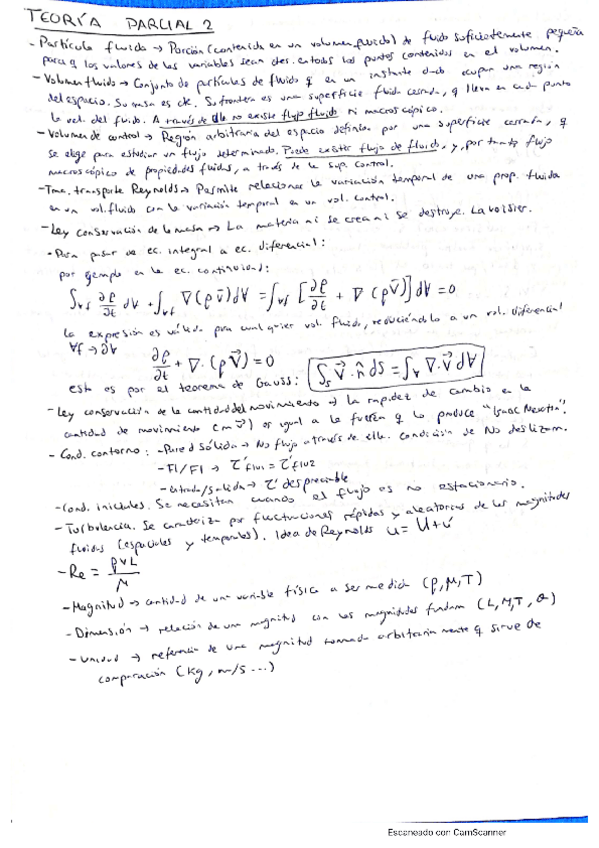 TEORÍA PARCIAL 2
- Partícula fluida → Porción (contenida en un volumen fluido) de fluido suficientemente pequeña
para q los valores de las variables sean ctes. en todos los puntos contenidos en el volumen.
- Volumen fluido → Conjunto de partículas de fluido q en un instante dado ocupan una región
del espacio. Su masa es cte. Su frontera es una superficie fluida cerrada, q lleva en cada punto
la vel. del fluido. A través de ella no existe flujo fluido ni macroscópico.
- Volumen de control → Región arbitraria del espacio definida por una superficie cerrada, q
se elige para estudiar un flujo determinado. Puede existir flujo de fluido, y, por tanto flujo
macroscópico de propiedades fluidas, a través de la sup. control.
- Tma. transporte Reynolds → Permite relacionar la variación temporal de una prop. fluida
en un vol. fluido con la variación temporal en un vol. control.
- Ley conservación de la masa → La materia ni se crea ni se destruye. Lavoisier.
- Para pasar de ec. integral a ec. diferencial:
por ejemplo en la ec. continuidad:
∫vf ∂ρ/∂t dV + ∫vf ∇(ρv̄)dV = ∫vf [∂ρ/∂t + ∇(ρv̄)]dV = 0
la expresión es válida para cualquier vol. fluido, reduciéndolo a un vol. diferencial
Vf → ∂V
∂ρ/∂t + ∇·(ρv⃗) = 0
esto es por el teorema de Gauss: ∫s v⃗·n̂ ds = ∫v ∇·v⃗ dV
- Ley conservación de la cantidad del movimiento → la rapidez de cambio en la
cantidad de movimiento (mv⃗) es igual a la fuerza q lo produce "Isaac Newton".
- Cond. contorno: - Pared sólida → No flujo a través de ella. condición de No deslizam.
- Fl/Fl → τ'fluo1 = τ'fluo2
- entrada/salida → τ' despreciable
- Cond. iniciales. Se necesitan cuando el flujo es no estacionario.
- Turbulencia. Se caracteriza por fluctuaciones rápidas y aleatorias de las magnitudes
fluidas (espaciales y temporales). Idea de Reynolds u = U + u'
- Re = ρvL/μ
- Magnitud → cantidad de una variable física a ser medida (ρ, M, T)
- Dimensión → relación de una magnitud con las magnitudes fundam (L, M, T, θ)
- Unidad → referencia de una magnitud tomada arbitrariamente q sirve de
comparación (kg, m/s ...)
Escaneado con CamScanner